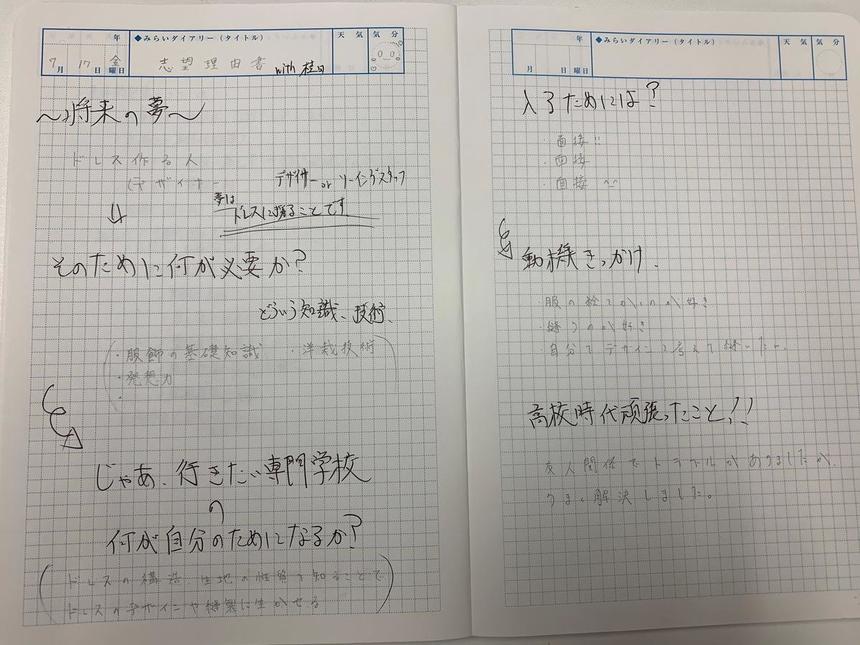 年 ◆みらいダイアリー（タイトル） 天気 気分
7月 17日 金曜日 志望理由書 with 桂田
〜将来の夢〜
ドレス作る人
(デザイナー
デザイナー or ソーイングスタッフ
夢は
ドレスに携ることです
そのために何が必要か?
どういう知識、技術、
・服飾の基礎知識 ・洋裁技術
・発想力
・
じゃあ、行きたい専門学校
の
何が自分のためになるか?
ドレスの構造、生地の性質を知ることで
ドレスのデザインや縫製に生かせる
年 ◆みらいダイアリー（タイトル） 天気 気分
月 日 曜日
入るためには?
・面接!!
・面接
・面接
動機きっかけ、
・服の絵をかくのが好き
・縫うのが好き
・自分でデザインを考えて縫った
高校時代頑張ったこと!!
友人関係でトラブルがありましたが、
うまく解決しました。